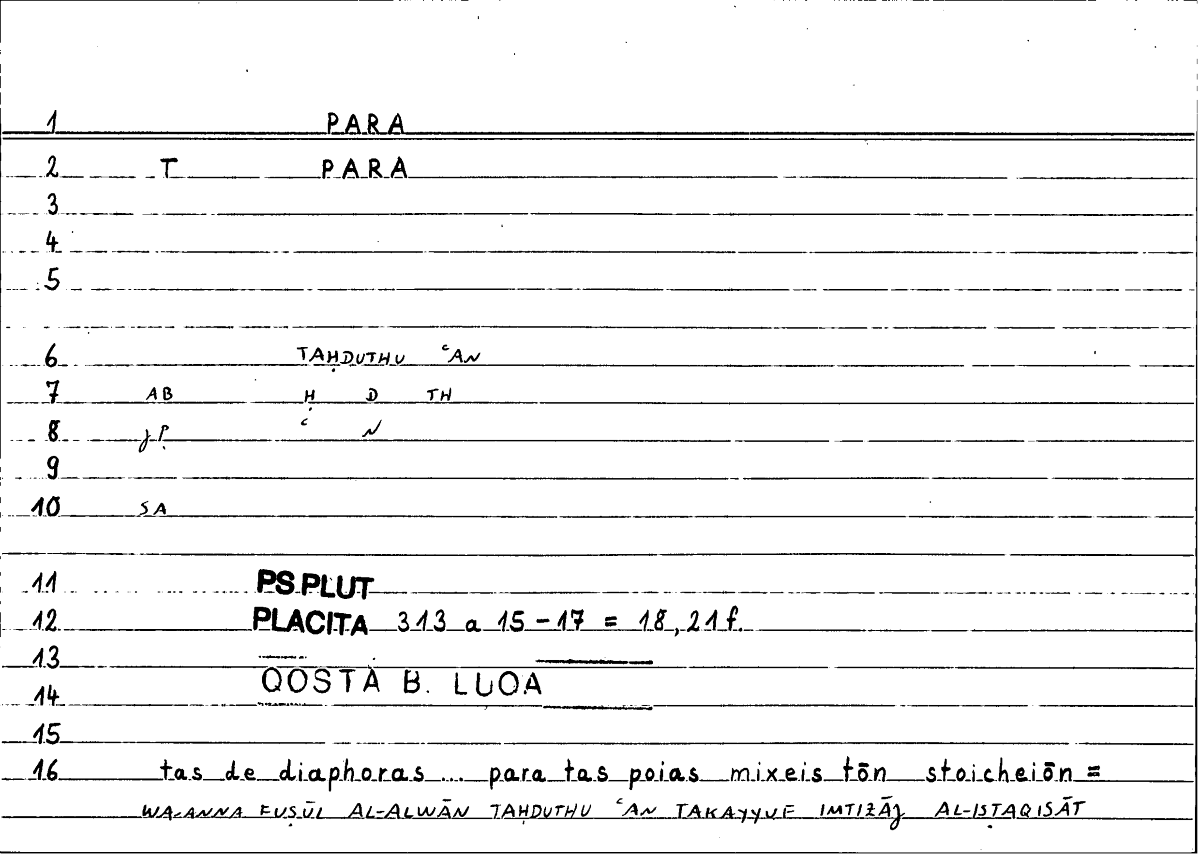 1 PARA
2 T PARA
3
4
5
6 TAḤDUTHU ʿAN
7 AB Ḥ D TH
8 JP ʿ N
9
10 SA
11 PS.PLUT
12 PLACITA 313 a 15-17 = 18,21f.
13
14 QOSTA B. LUQA
15
16 tas de diaphoras ... para tas poias mixeis tōn stoicheiōn =
WA-ANNA FUṢŪL AL-ALWĀN TAḤDUTHU ʿAN TAKAYYUF IMTIZĀJ AL-ISṬAQISĀT